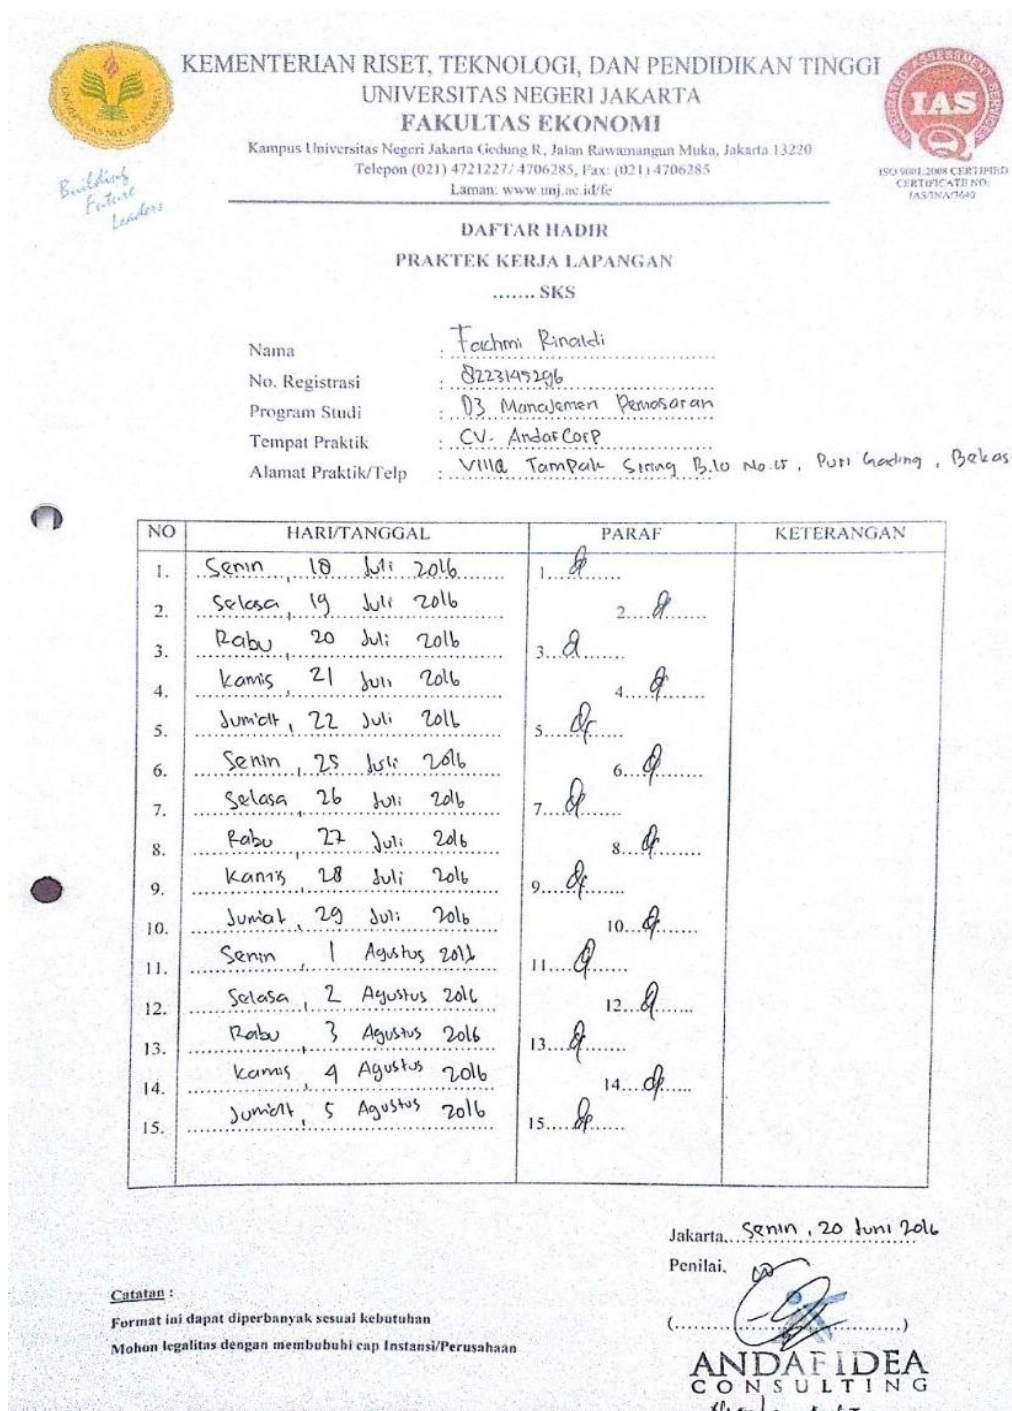 KEMENTERIAN RISET, TEKNOLOGI, DAN PENDIDIKAN TINGGI
UNIVERSITAS NEGERI JAKARTA
FAKULTAS EKONOMI
Kampus Universitas Negeri Jakarta Gedung R, Jalan Rawamangun Muka, Jakarta 13220
Telepon (021) 4721227/ 4706285, Fax: (021) 4706285
Laman: www.unj.ac.id/fe
Building
Future
Leaders
INTEGRATED ASSESSMENT SERVICES
IAS
ISO 9001:2008 CERTIFIED
CERTIFICATE NO:
IAS/INA/3640
DAFTAR HADIR
PRAKTEK KERJA LAPANGAN
....... SKS
Nama : Fachmi Rinaldi
No. Registrasi : 8223145296
Program Studi : D3 Manajemen Pemasaran
Tempat Praktik : CV. Andaf Corp
Alamat Praktik/Telp : Villa Tampak Siring B.10 No.15, Puri Gading, Bekas
NO HARI/TANGGAL PARAF KETERANGAN
1. Senin, 18 Juli 2016 1.
2. Selasa, 19 Juli 2016 2.
3. Rabu, 20 Juli 2016 3.
4. Kamis, 21 Juli 2016 4.
5. Jum'at, 22 Juli 2016 5.
6. Senin, 25 Juli 2016 6.
7. Selasa, 26 Juli 2016 7.
8. Rabu, 27 Juli 2016 8.
9. Kamis, 28 Juli 2016 9.
10. Jumat, 29 Juli 2016 10.
11. Senin, 1 Agustus 2016 11.
12. Selasa, 2 Agustus 2016 12.
13. Rabu, 3 Agustus 2016 13.
14. Kamis, 4 Agustus 2016 14.
15. Jum'at, 5 Agustus 2016 15.
Jakarta, Senin, 20 Juni 2016
Penilai,
(..............................)
ANDAFIDEA
CONSULTING
Catatan :
Format ini dapat diperbanyak sesuai kebutuhan
Mohon legalitas dengan membubuhi cap Instansi/Perusahaan